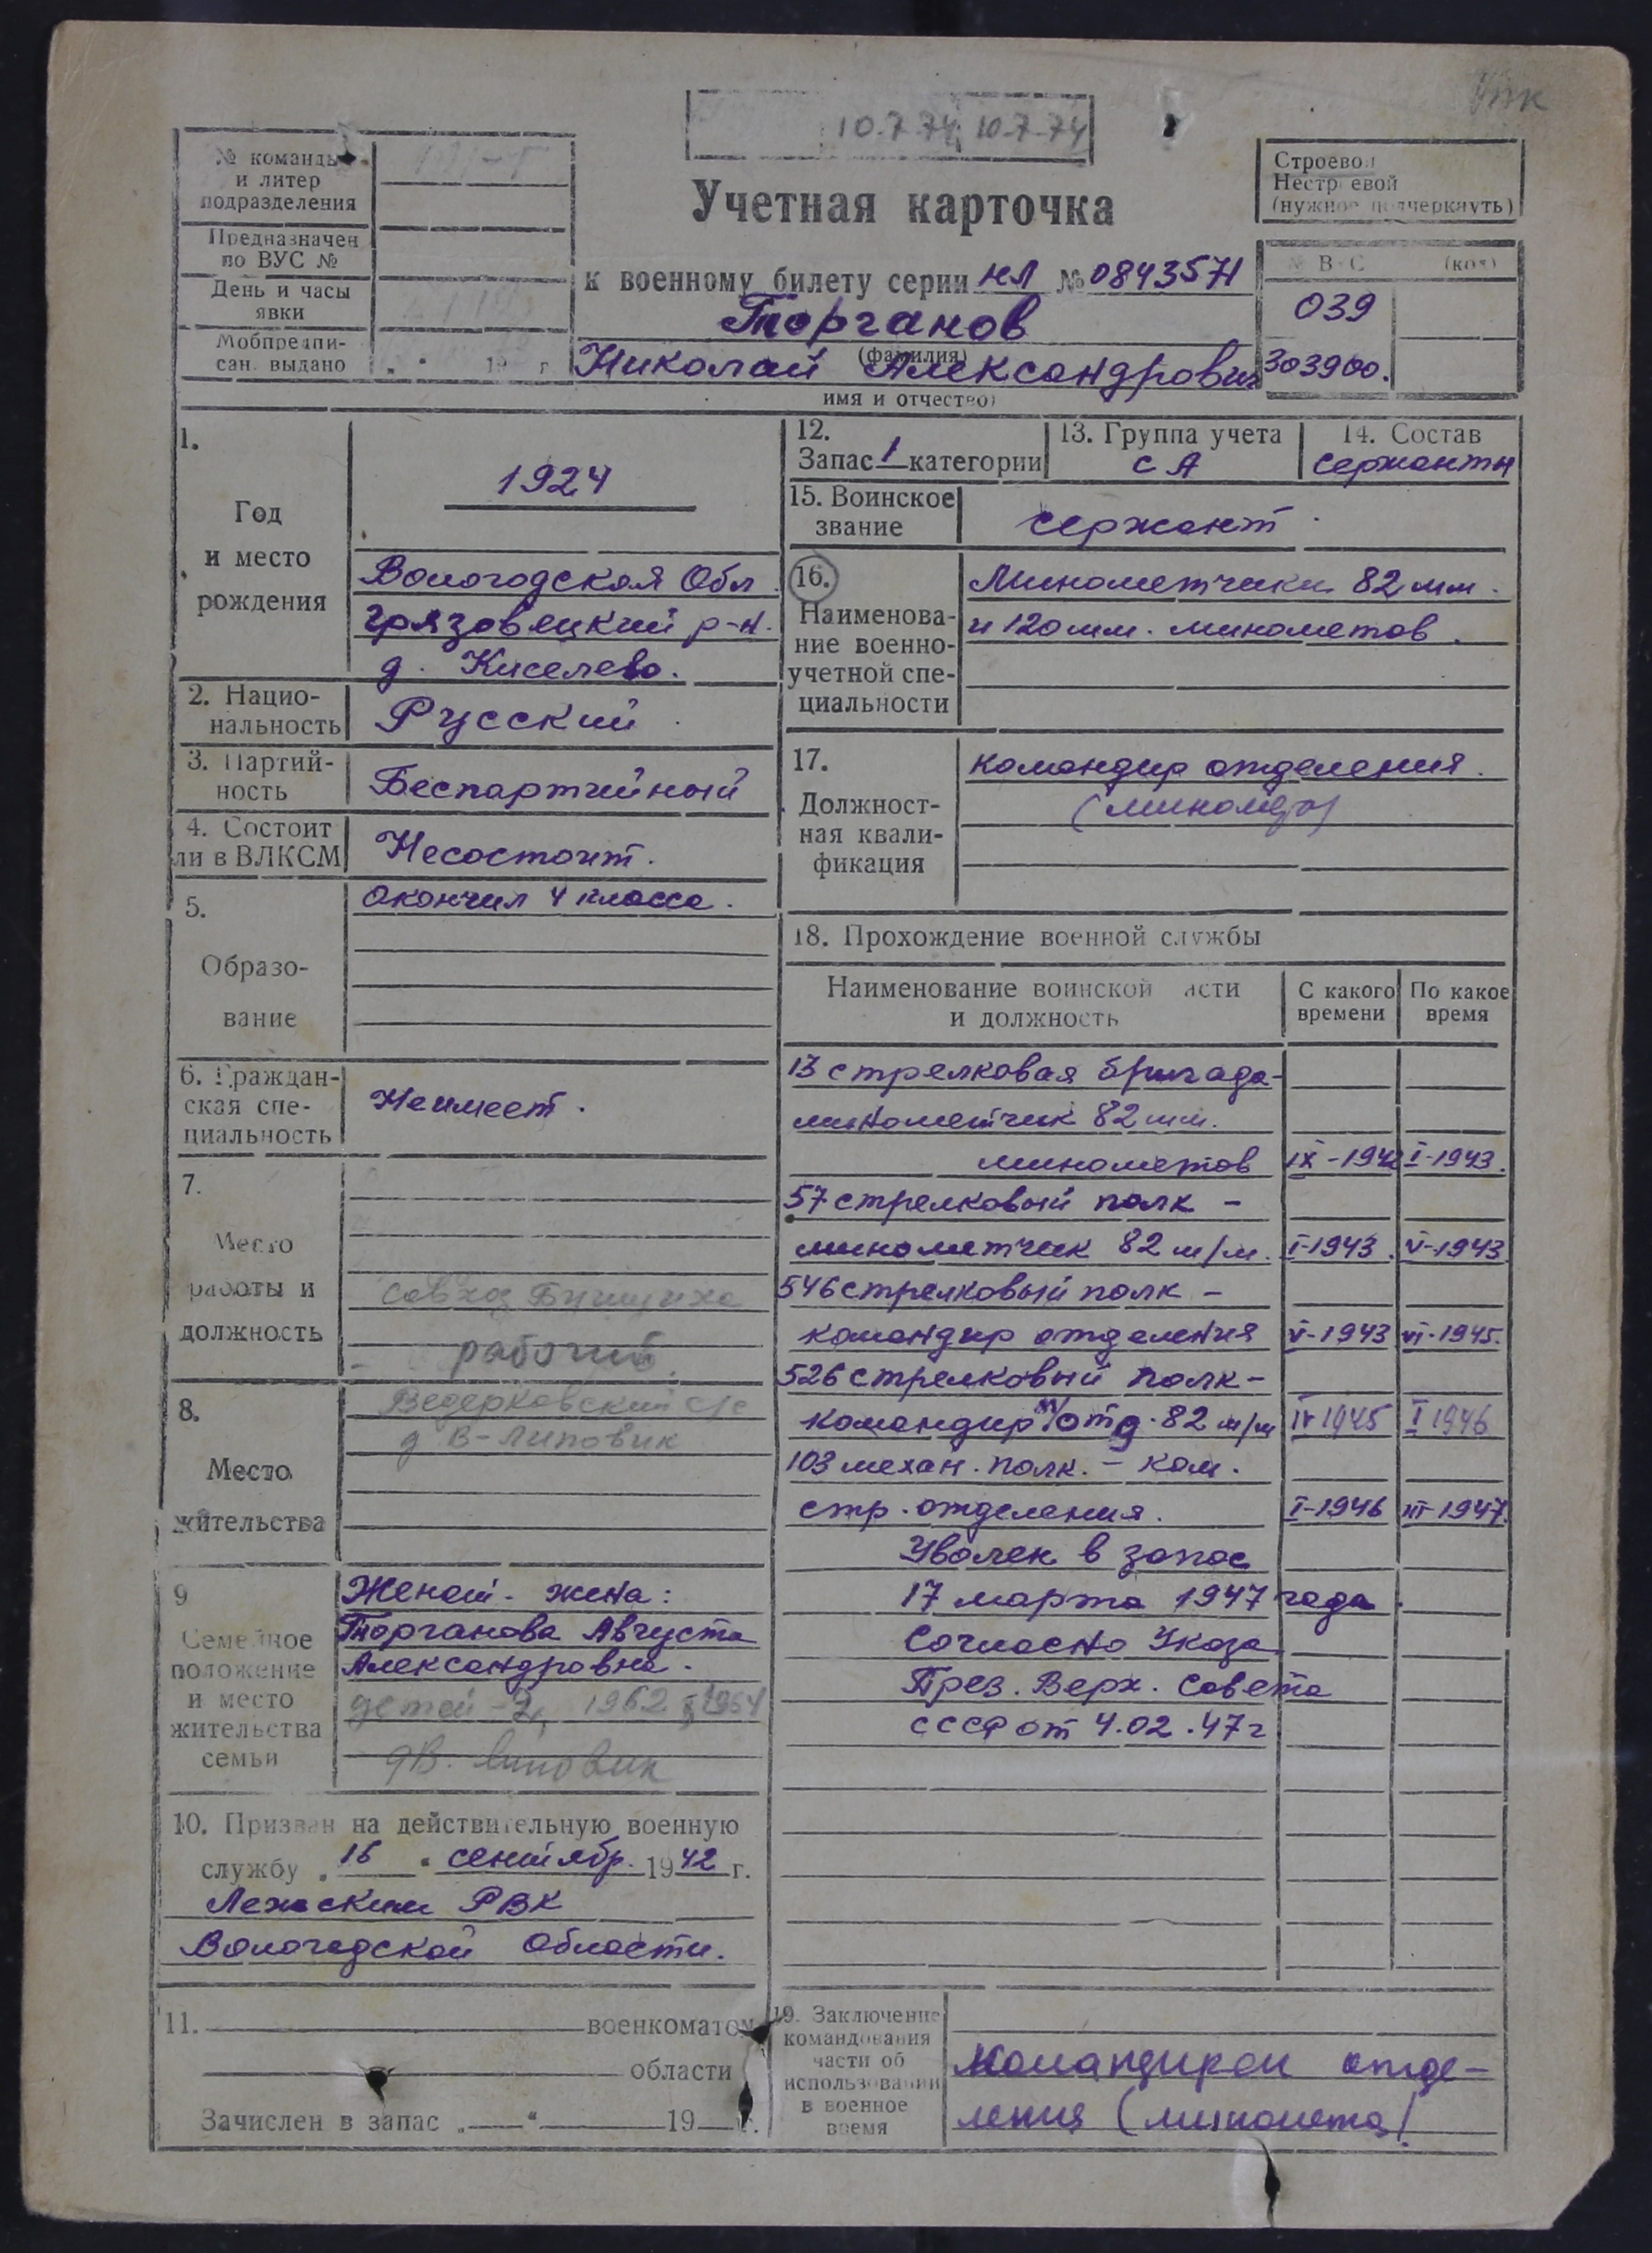 10.7.74 10.7.74
№ команды
и литер
подразделения
Предназначен
по ВУС №
День и часы
явки
Мобпредпи-
сан. выдано
19 г
Учетная карточка
к военному билету серии НЛ № 0843571
Торганов
(фамилия)
Николай Александрович
имя и отчество)
Строевой
Нестроевой
(нужное подчеркнуть)
ВУС (код)
039
303900.
1.
Год
и место
рождения
1924
Вологодская Обл.
Грязовецкий р-н.
д. Киселево.
2. Нацио-
нальность
Русский
3. Партий-
ность
Беспартийный
4. Состоит
ли в ВЛКСМ
Несостоит.
5.
Образо-
вание
Окончил 4 класса.
6. Граждан-
ская спе-
циальность
Неимеет.
7.
Место
работы и
должность
совхоз
рабочий
8.
Место
жительства
Ведерковский с/с
д В-Липовик
9
Семейное
положение
и место
жительства
семьи
Женат. жена:
Торганова Августа
Александровна.
детей-2, 1962 1964
д В. Липовик
10. Призван на действительную военную
службу „16" сентябр. 1942 г.
Лежским РВК
Вологодской области.
11. военкоматом
области
Зачислен в запас „ " 19 г.
12.
Запас 1 категории
13. Группа учета
СА
14. Состав
Сержанты
15. Воинское
звание
сержант
16.
Наименова-
ние военно-
учетной спе-
циальности
Минометчики 82 мм.
и 120 мм. минометов.
17.
Должност-
ная квали-
фикация
командир отделения.
(миномета)
18. Прохождение военной службы
Наименование воинской части
и должность
С какого
времени
По какое
время
13 стрелковая бригада-
минометчик 82 мм.
минометов IX-1942 I-1943.
57 стрелковый полк -
минометчик 82 м/м. I-1943. V-1943
546 стрелковый полк -
командир отделения V-1943 VI-1945.
526 стрелковый полк -
командир м/отд. 82 м/м IV 1945 I 1946
103 механ. полк. - ком.
стр. отделения. I-1946 III-1947.
Уволен в запас
17 марта 1947 года.
Согласно Указа
През. Верх. Совета
СССР от 4.02.47г
19. Заключение
командования
части об
использовании
в военное
время
Командиром отде-
ления (миномета)